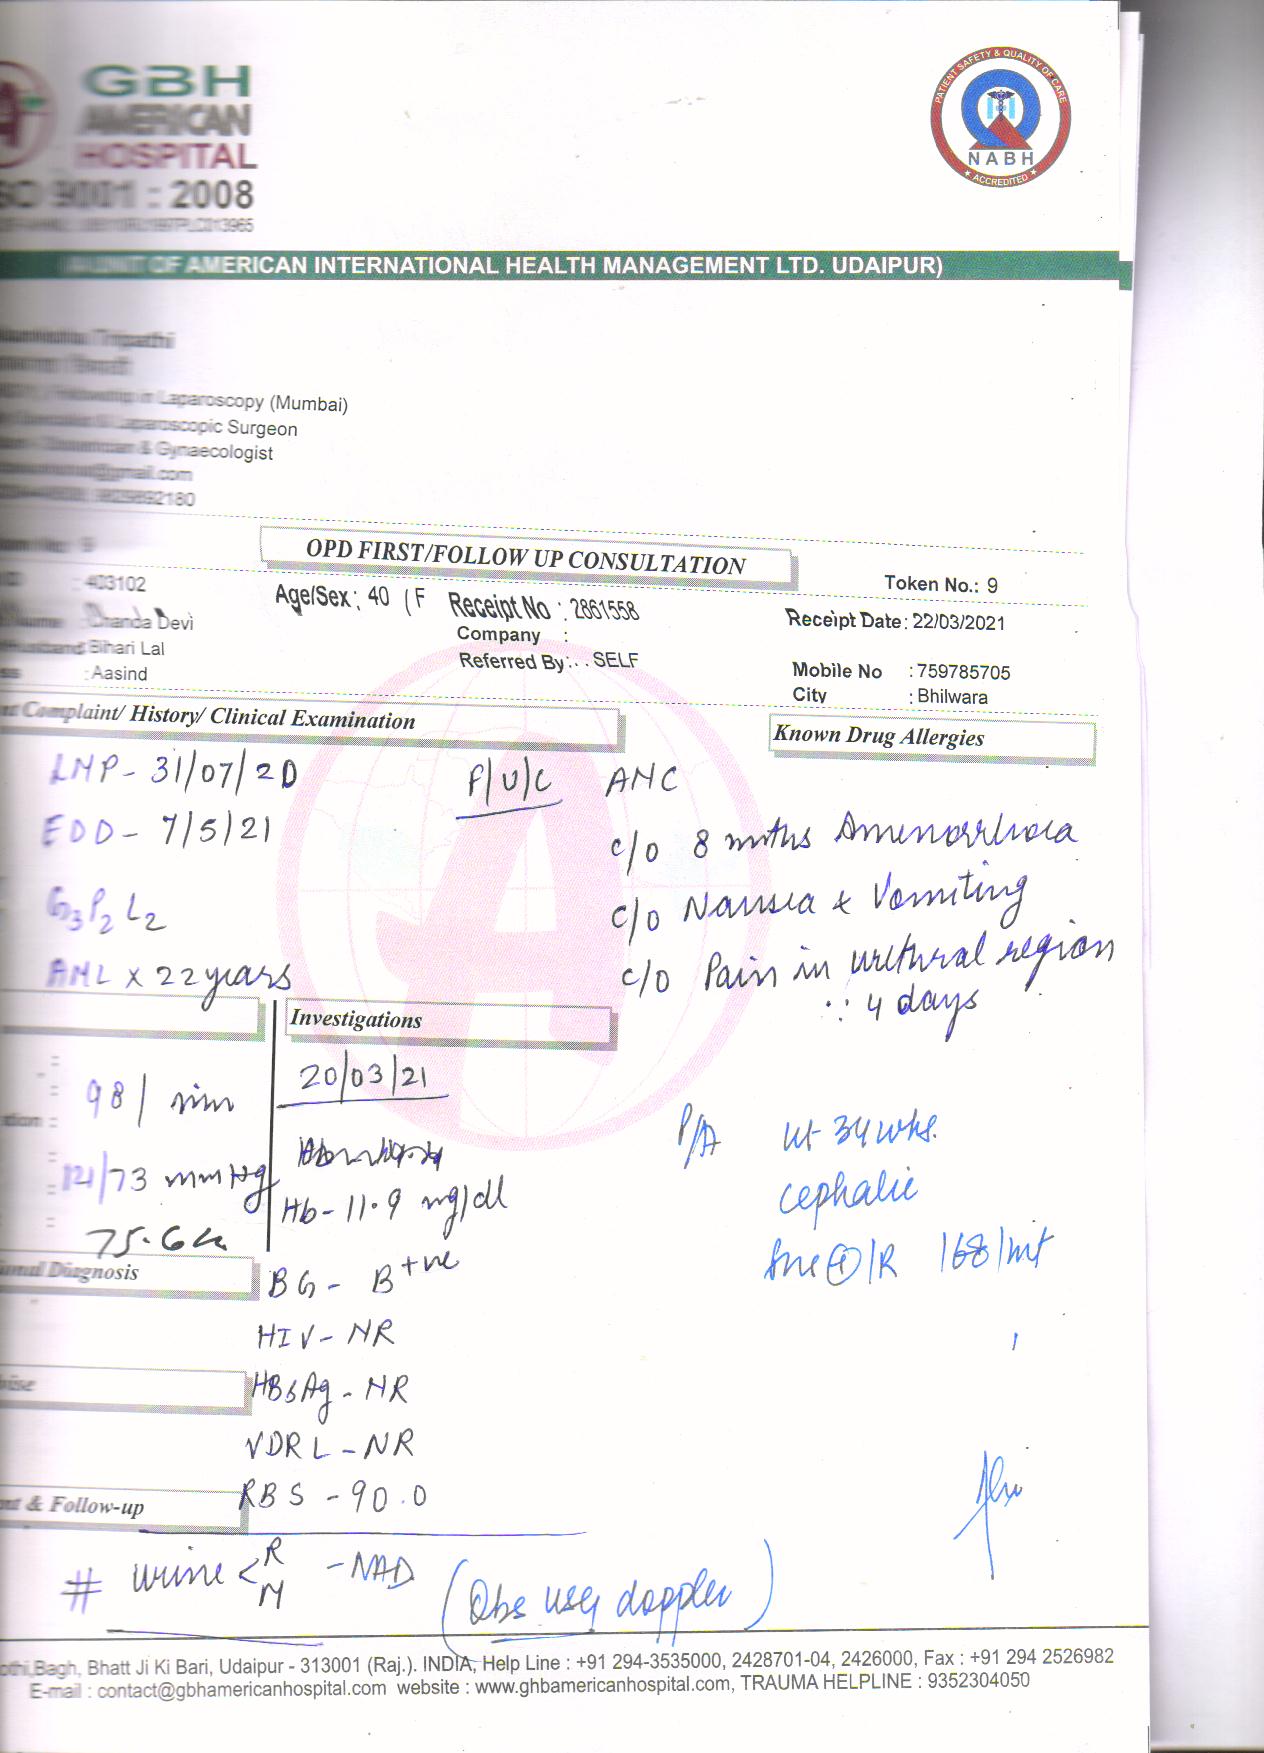 GBH
AMERICAN
HOSPITAL
ISO 9001 : 2008
PATIENT SAFETY & QUALITY OF CARE
NABH
ACCREDITED
(A UNIT OF AMERICAN INTERNATIONAL HEALTH MANAGEMENT LTD. UDAIPUR)
Tripathi
Fellowship in Laparoscopy (Mumbai)
Laparoscopic Surgeon
& Gynaecologist
@gmail.com
OPD FIRST/FOLLOW UP CONSULTATION
Token No.: 9
: 403102
Age/Sex : 40 ( F
Receipt No : 2861558
Receipt Date : 22/03/2021
Name : Chanda Devi
Company :
Husband Bihari Lal
Referred By : . . SELF
Mobile No : 759785705
: Aasind
City : Bhilwara
Complaint/ History/ Clinical Examination
Known Drug Allergies
LMP - 31/07/20
F/U/C ANC
EDD - 7/5/21
c/o 8 mnths Amenorrhoea
G3P2L2
c/o Nausea & Vomiting
AML x 22 years
c/o Pain in urethral region
∵ 4 days
Investigations
20/03/21
98 / min
P/A ut 34 wks.
cephalic
121/73 mmHg
Hb - 11.9 mg/dl
75.6
168/mt
Diagnosis
BG - B +ve
HIV - NR
HBsAg - NR
VDRL - NR
RBS - 90.0
& Follow-up
# urine < R M - NAD
(Obs usg doppler)
Bagh, Bhatt Ji Ki Bari, Udaipur - 313001 (Raj.). INDIA, Help Line : +91 294-3535000, 2428701-04, 2426000, Fax : +91 294 2526982
E-mail : contact@gbhamericanhospital.com website : www.ghbamericanhospital.com, TRAUMA HELPLINE : 9352304050